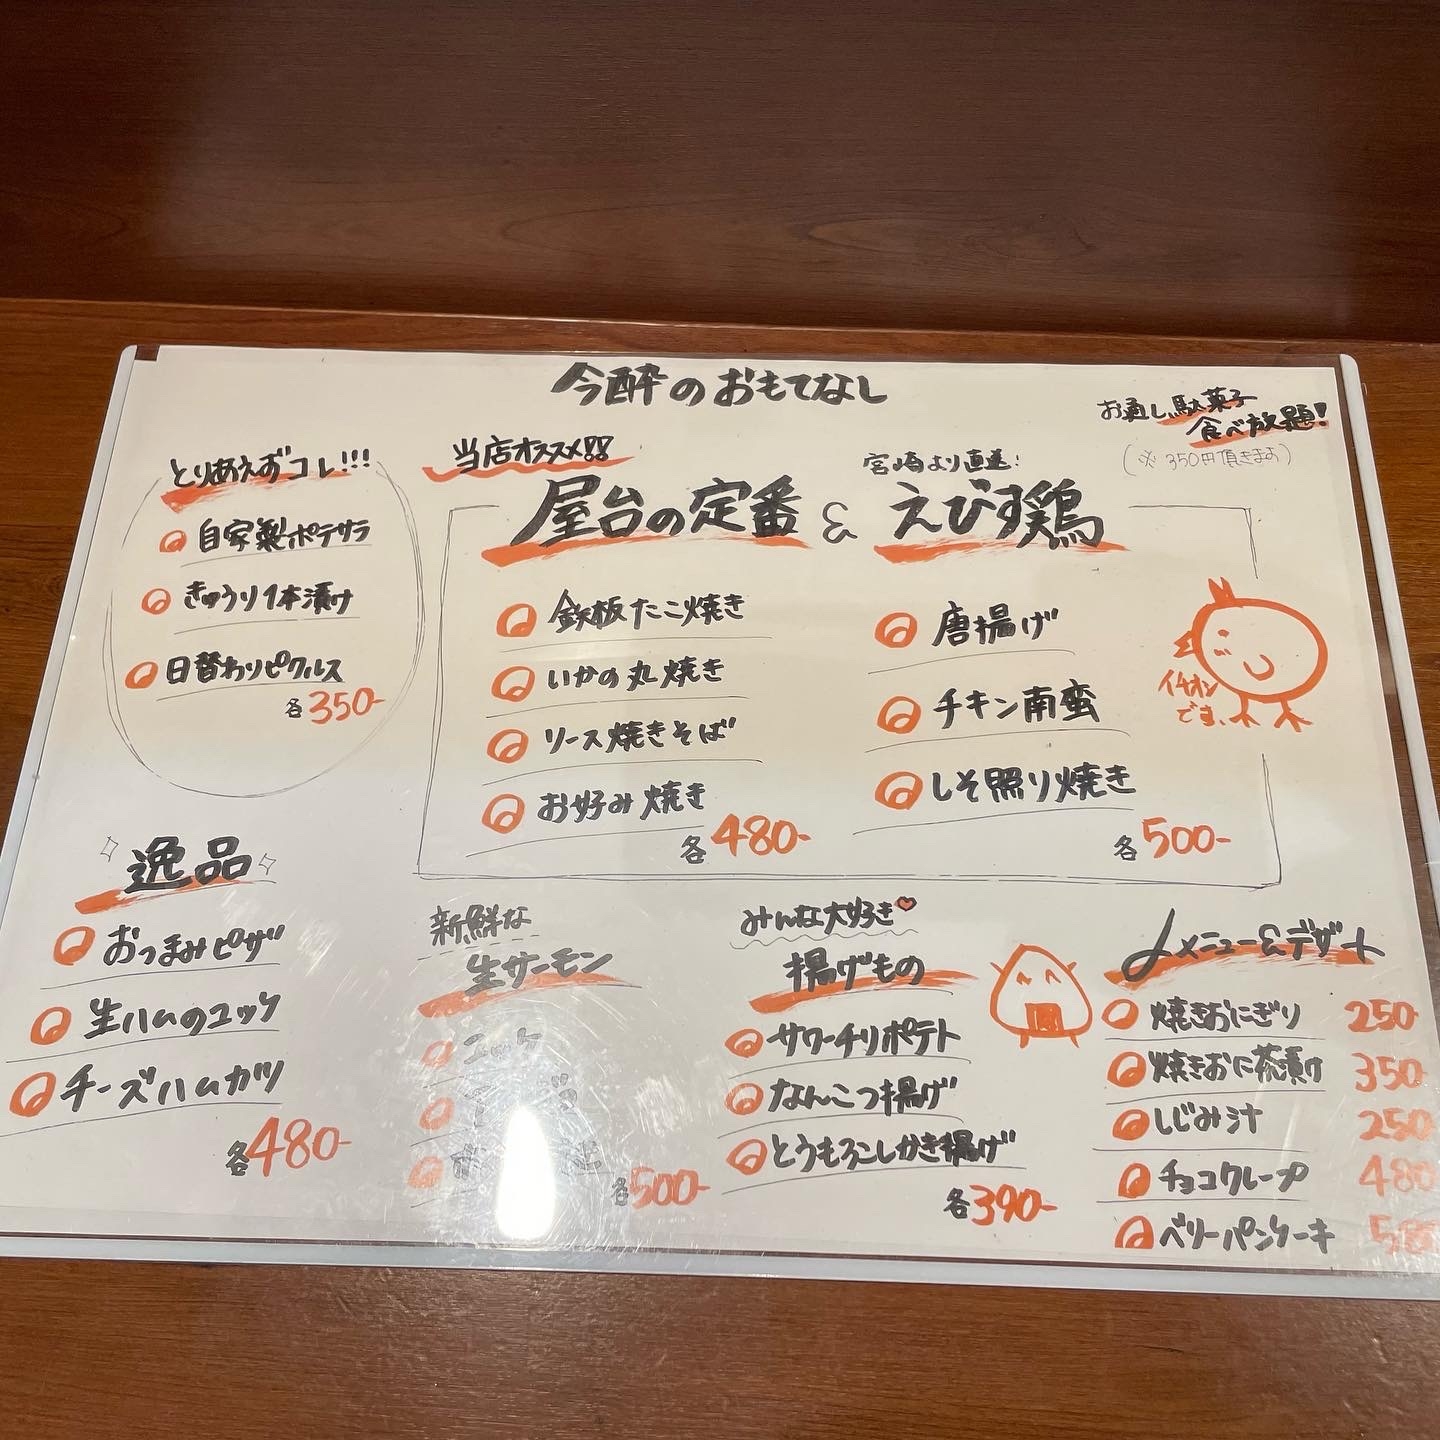 今酔のおもてなし
お通し駄菓子
食べ放題!
(※350円頂きます)
とりあえずコレ!!!
自家製ポテサラ
きゅうり1本漬け
日替わりピクルス
各350-
当店オススメ!!
屋台の定番 &
宮崎より直送!
えびす鶏
鉄板たこ焼き
いかの丸焼き
ソース焼きそば
お好み焼き
各480-
唐揚げ
チキン南蛮
しそ照り焼き
各500-
イチオシ
でま、
逸品
おつまみピザ
生ハムのユッケ
チーズハムカツ
各480-
新鮮な
生サーモン
ユッケ
各500-
みんな大好き
揚げもの
サワーチリポテト
なんこつ揚げ
とうもろこしかき揚げ
各390-
〆メニュー&デザート
焼きおにぎり 250-
焼きおに茶漬け 350-
しじみ汁 250-
チョコクレープ 480
ベリーパンケーキ